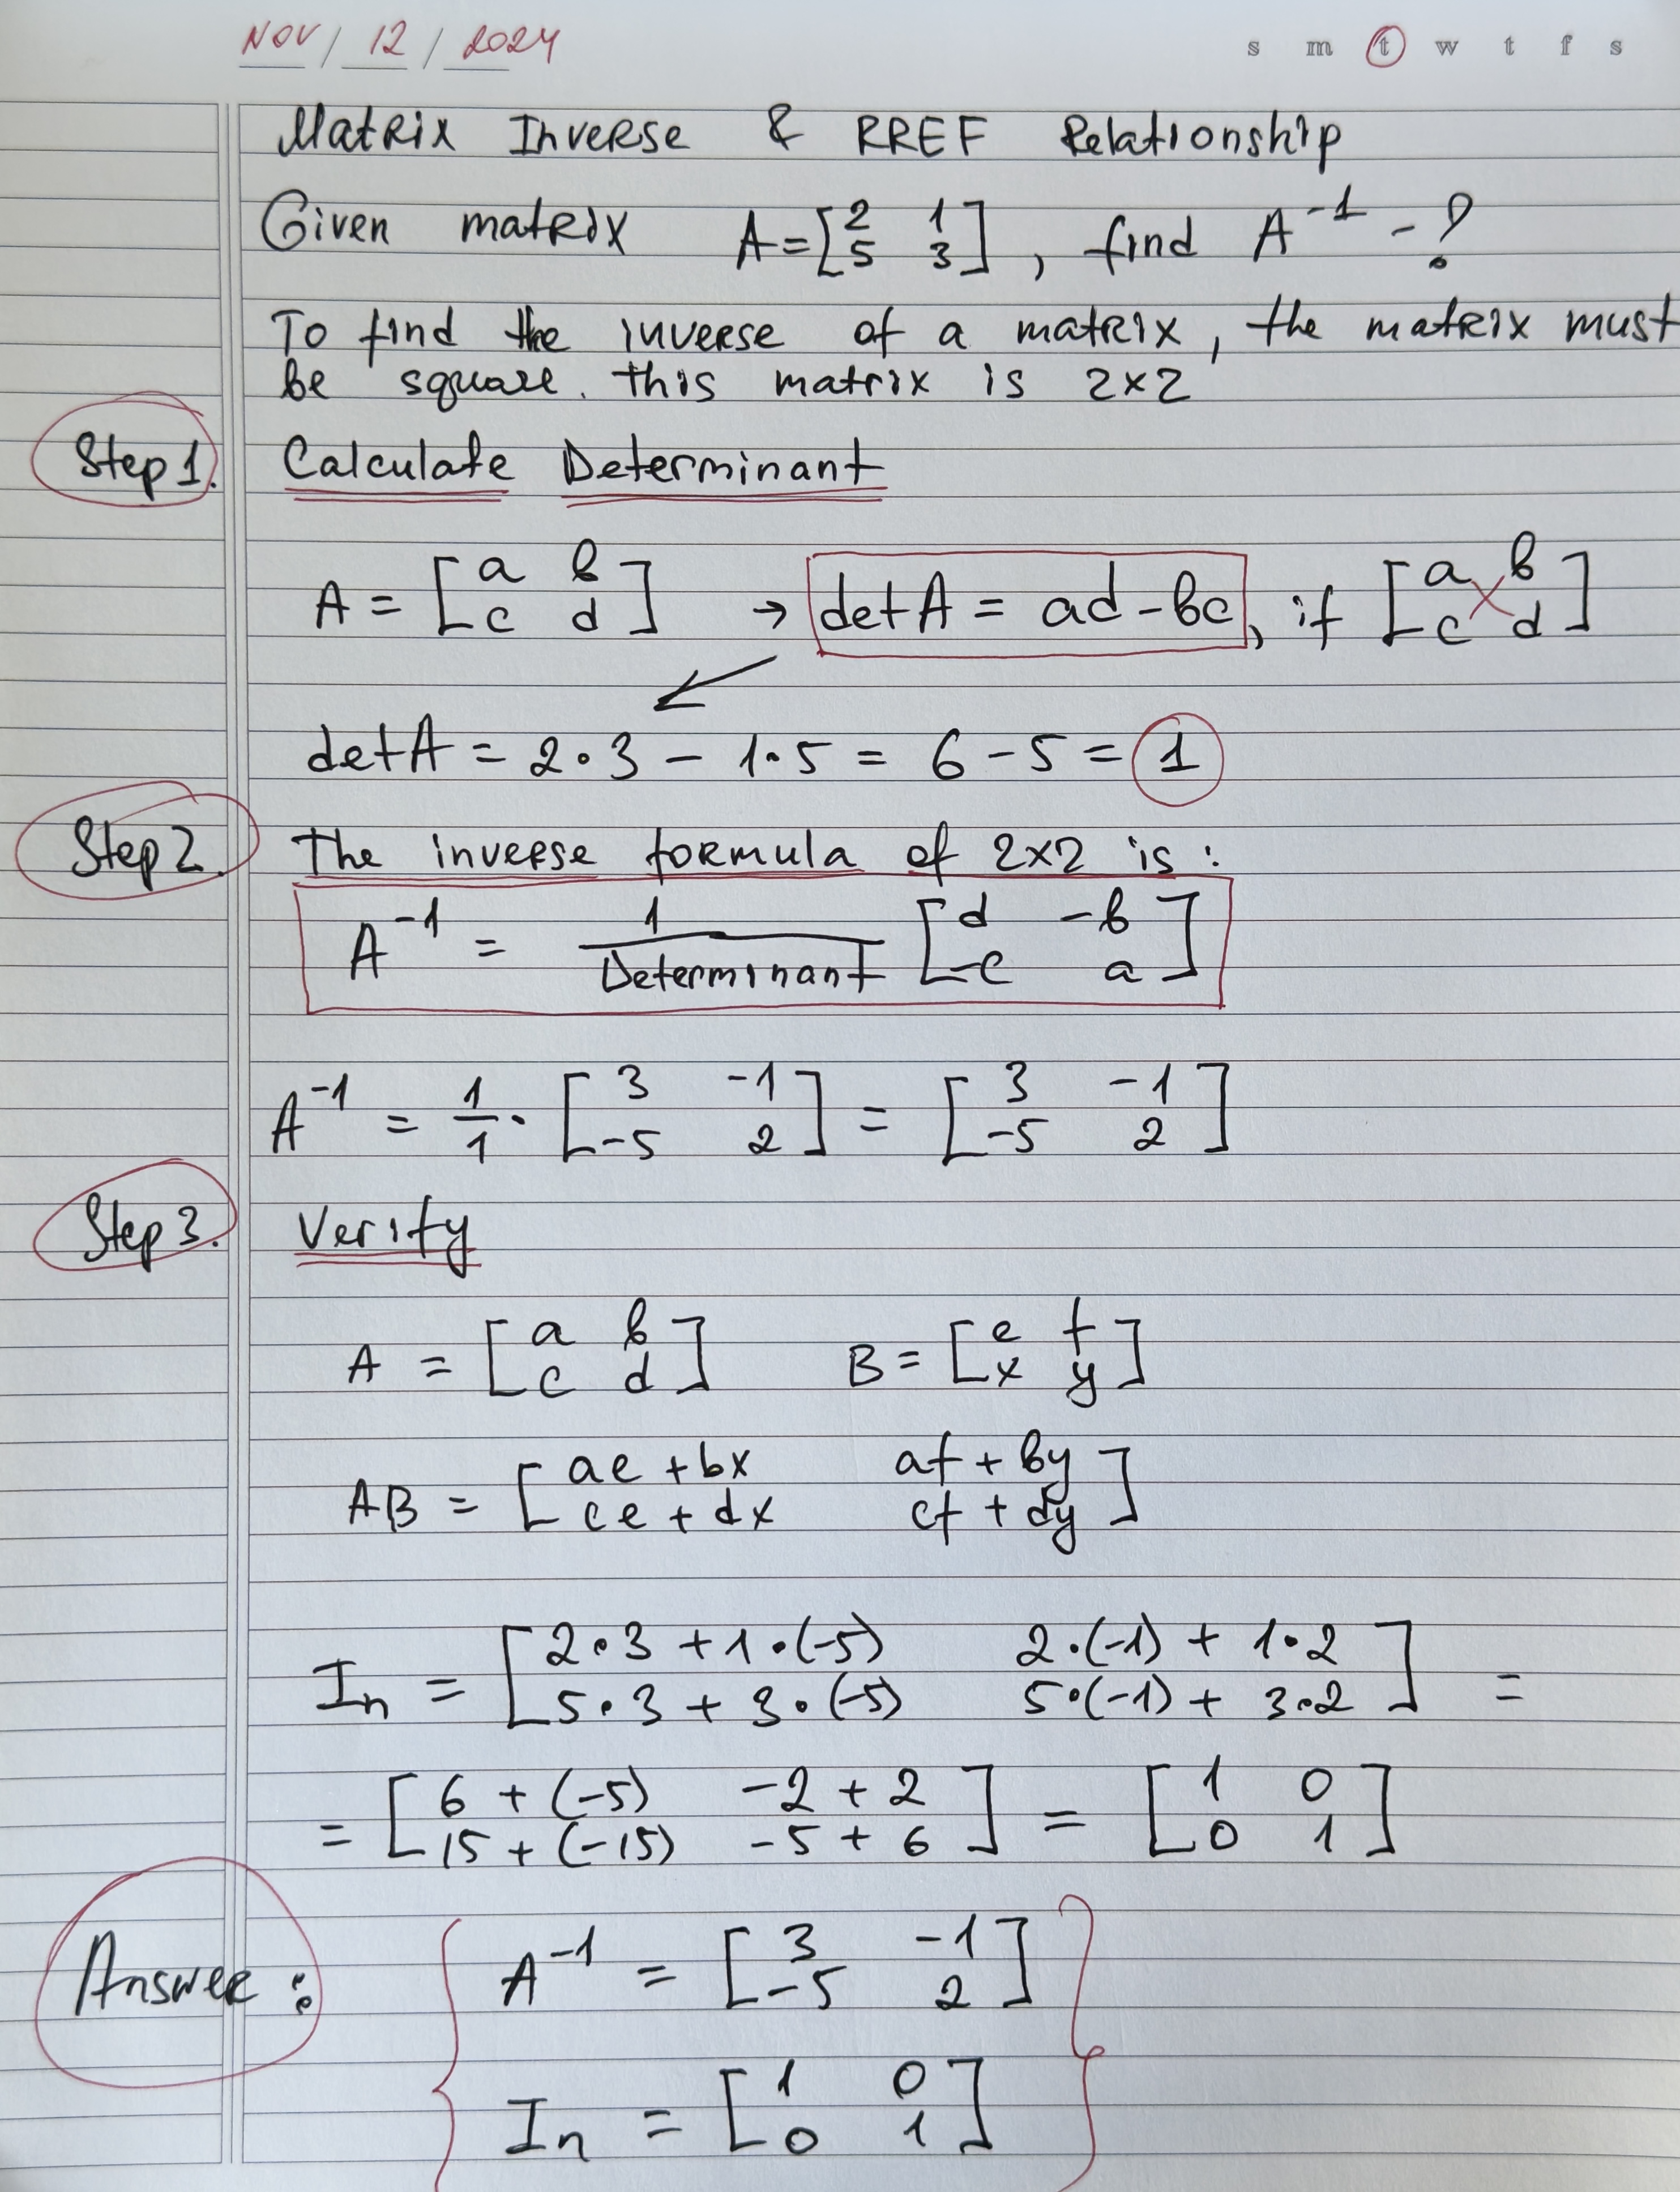 NOV / 12 / 2024 s m t w t f s
Matrix Inverse & RREF Relationship
Given matrix A = [2 1; 5 3], find A⁻¹ - ?
To find the inverse of a matrix, the matrix must
be square. this matrix is 2x2
Step 1. Calculate Determinant
A = [a b; c d] → detA = ad - bc, if [a b; c d]
detA = 2·3 - 1·5 = 6 - 5 = 1
Step 2. The inverse formula of 2x2 is:
A⁻¹ = 1/Determinant [d -b; -c a]
A⁻¹ = 1/1 · [3 -1; -5 2] = [3 -1; -5 2]
Step 3. Verify
A = [a b; c d] B = [e f; x y]
AB = [ae + bx af + by; ce + dx cf + dy]
In = [2·3 + 1·(-5) 2·(-1) + 1·2; 5·3 + 3·(-5) 5·(-1) + 3·2] =
= [6 + (-5) -2 + 2; 15 + (-15) -5 + 6] = [1 0; 0 1]
Answer: { A⁻¹ = [3 -1; -5 2] }
In = [1 0; 0 1]